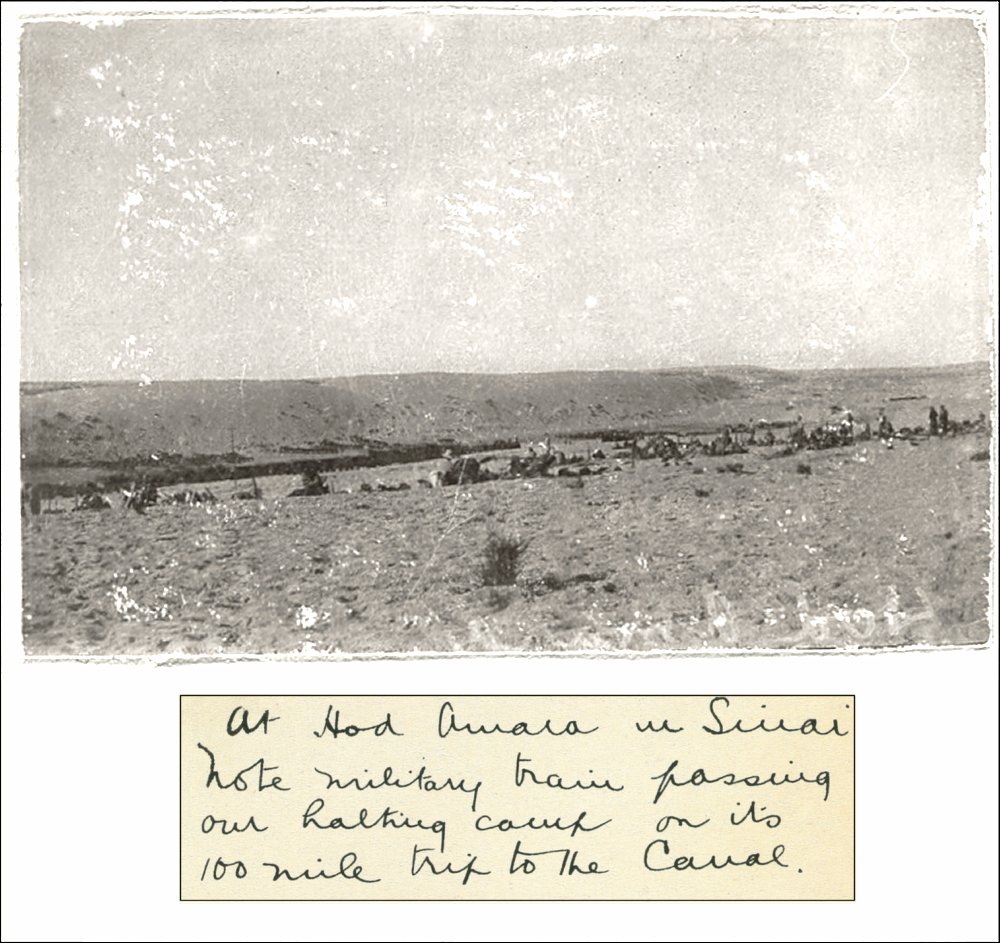 At Hod Amara in Sinai
Note military train passing
our halting camp on its
100 mile trip to the Canal.